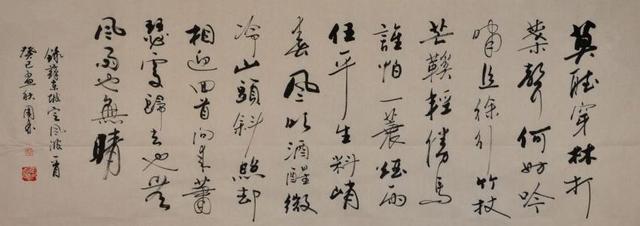 莫聽穿林打
葉聲何妨吟
嘯且徐行竹杖
芒鞵輕勝馬
誰怕一蓑煙雨
任平生料峭
春風吹酒醒微
冷山頭斜照却
相迎回首向來蕭
瑟處歸去也無
風雨也無晴
錄蘇東坡定風波一首
癸巳孟秋